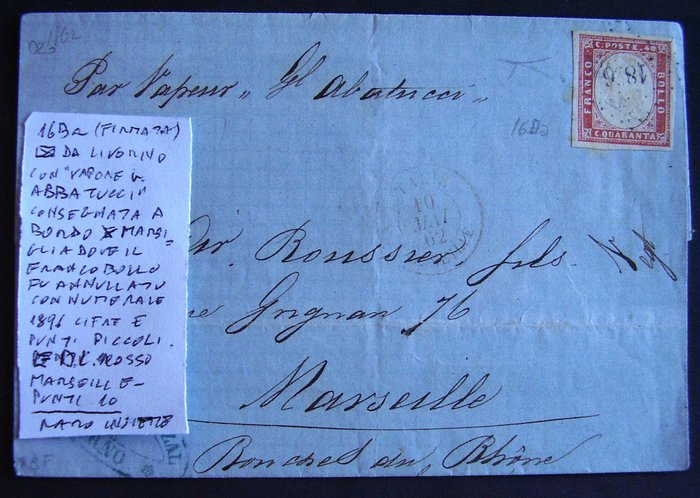 1862
Par Vapeur „ Gl Abatucci „
C. POSTE. 40
FRANCO
BOLLO
C. QUARANTA
18 6
16Ba
10
62
Roussier fils.
Grignan 76
Marseille
Bouches du Rhône
16Ba (FIRMATA)
DA LIVORNO
CON "VAPORE G.
ABBATUCCI"
CONSEGNATA A
BORDO X MARSI=
GLIA DOVE IL
FRANCOBOLLO
FU ANNULLATO
CON NUMERALE
1896 CIFRE E
PUNTI PICCOLI.
ROSSO
MARSEILLE-
PUNTI 10
RARO INSIEME